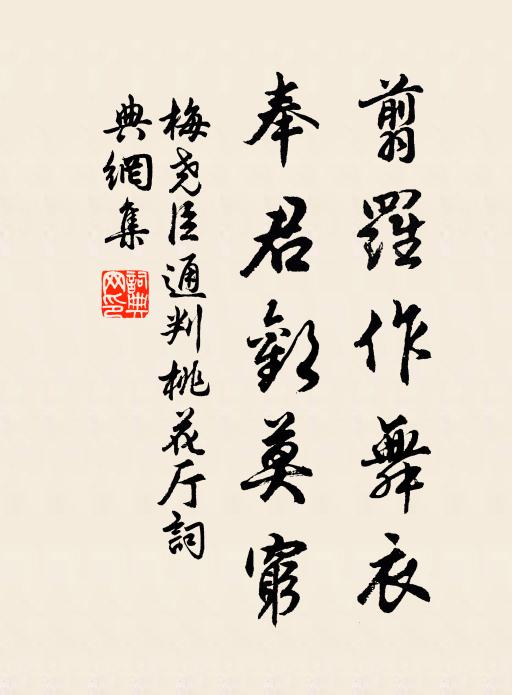 翦羅作舞衣
奉君歡莫窮
梅堯臣通判桃花厅詞
典網集
詞典網印